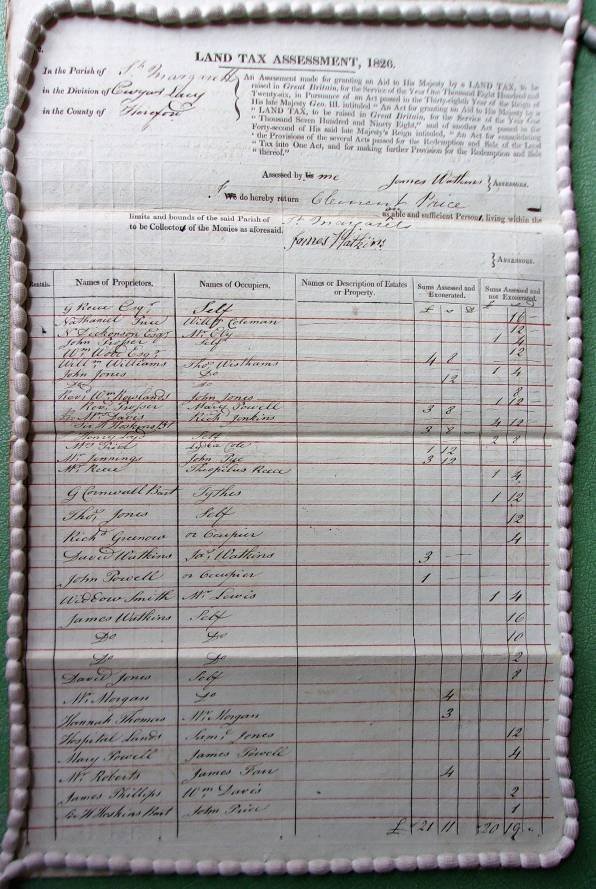 LAND TAX ASSESSMENT, 1826.
In the Parish of St Margarets
in the Division of Lacy
in the County of Hereford
An Assessment made for granting an Aid to His Majesty by a LAND TAX, to be
raised in Great Britain, for the Service of the Year One Thousand Eight Hundred and
Twenty-six, in Pursuance of an Act passed in the Thirty-eighth Year of the Reign of
His late Majesty Geo. III. intituled "An Act for granting an Aid to His Majesty by a
"LAND TAX, to be raised in Great Britain, for the Service of the Year One
"Thousand Seven Hundred and Ninety Eight," and of another Act passed in the
Forty-second of His said late Majesty's Reign intituled, "An Act for consolidating
"the Provisions of the several Acts passed for the Redemption and Sale of the Land
"Tax into One Act, and for making further Provision for the Redemption and Sale
"thereof."
Assessed by us me James Watkins } Assessors.
I We do hereby return Clement Price
as an able and sufficient Persons, living within the
limits and bounds of the said Parish of St Margarets
to be Collectors of the Monies as aforesaid.
James Watkins
} Assessors.
Rentals. Names of Proprietors. Names of Occupiers. Names or Description of Estates or Property. Sums Assessed and Exonerated. Sums Assessed and not Exonerated.
Esqr Self 16
Nathaniel Willm Coleman 12
N Dickenson Esqr Mr 1 4
John Prosser Self 12
Wm Esqr
Willm Williams Thos 4 8
John Jones Do 12 1 4
Do Do 8
Revd Wm Rowlands John Jones 1 12
Revd Prosser Mary Powell 3 8
Davis Richd Jenkins 4 12
Hoskins Bt 3 8
Self 2 8
Mr Lydia 1 12
Mr Jennings John 3 12
Mr Reece Theophilus Reece 1 4
G Cornwall Bart Tythes 1 12
Thos Jones Self 12
Richd Greenow or Occupier 4
David Watkins Jas Watkins 3 —
John Powell or Occupier 1 —
Widdow Smith Mr Lewis 1 4
James Watkins Self 16
Do Do 10
Do Do 2
David Jones Self 8
Mr Morgan Do 4
Hannah Thomas Mr Morgan 3
Hospital Lands Saml Jones 12
Mary Powell James Powell 4
Mr Roberts James Farr 4
James Phillips Wm Davis 2
Sr H Hoskins Bart John Price 1
£ 21 11 20 19